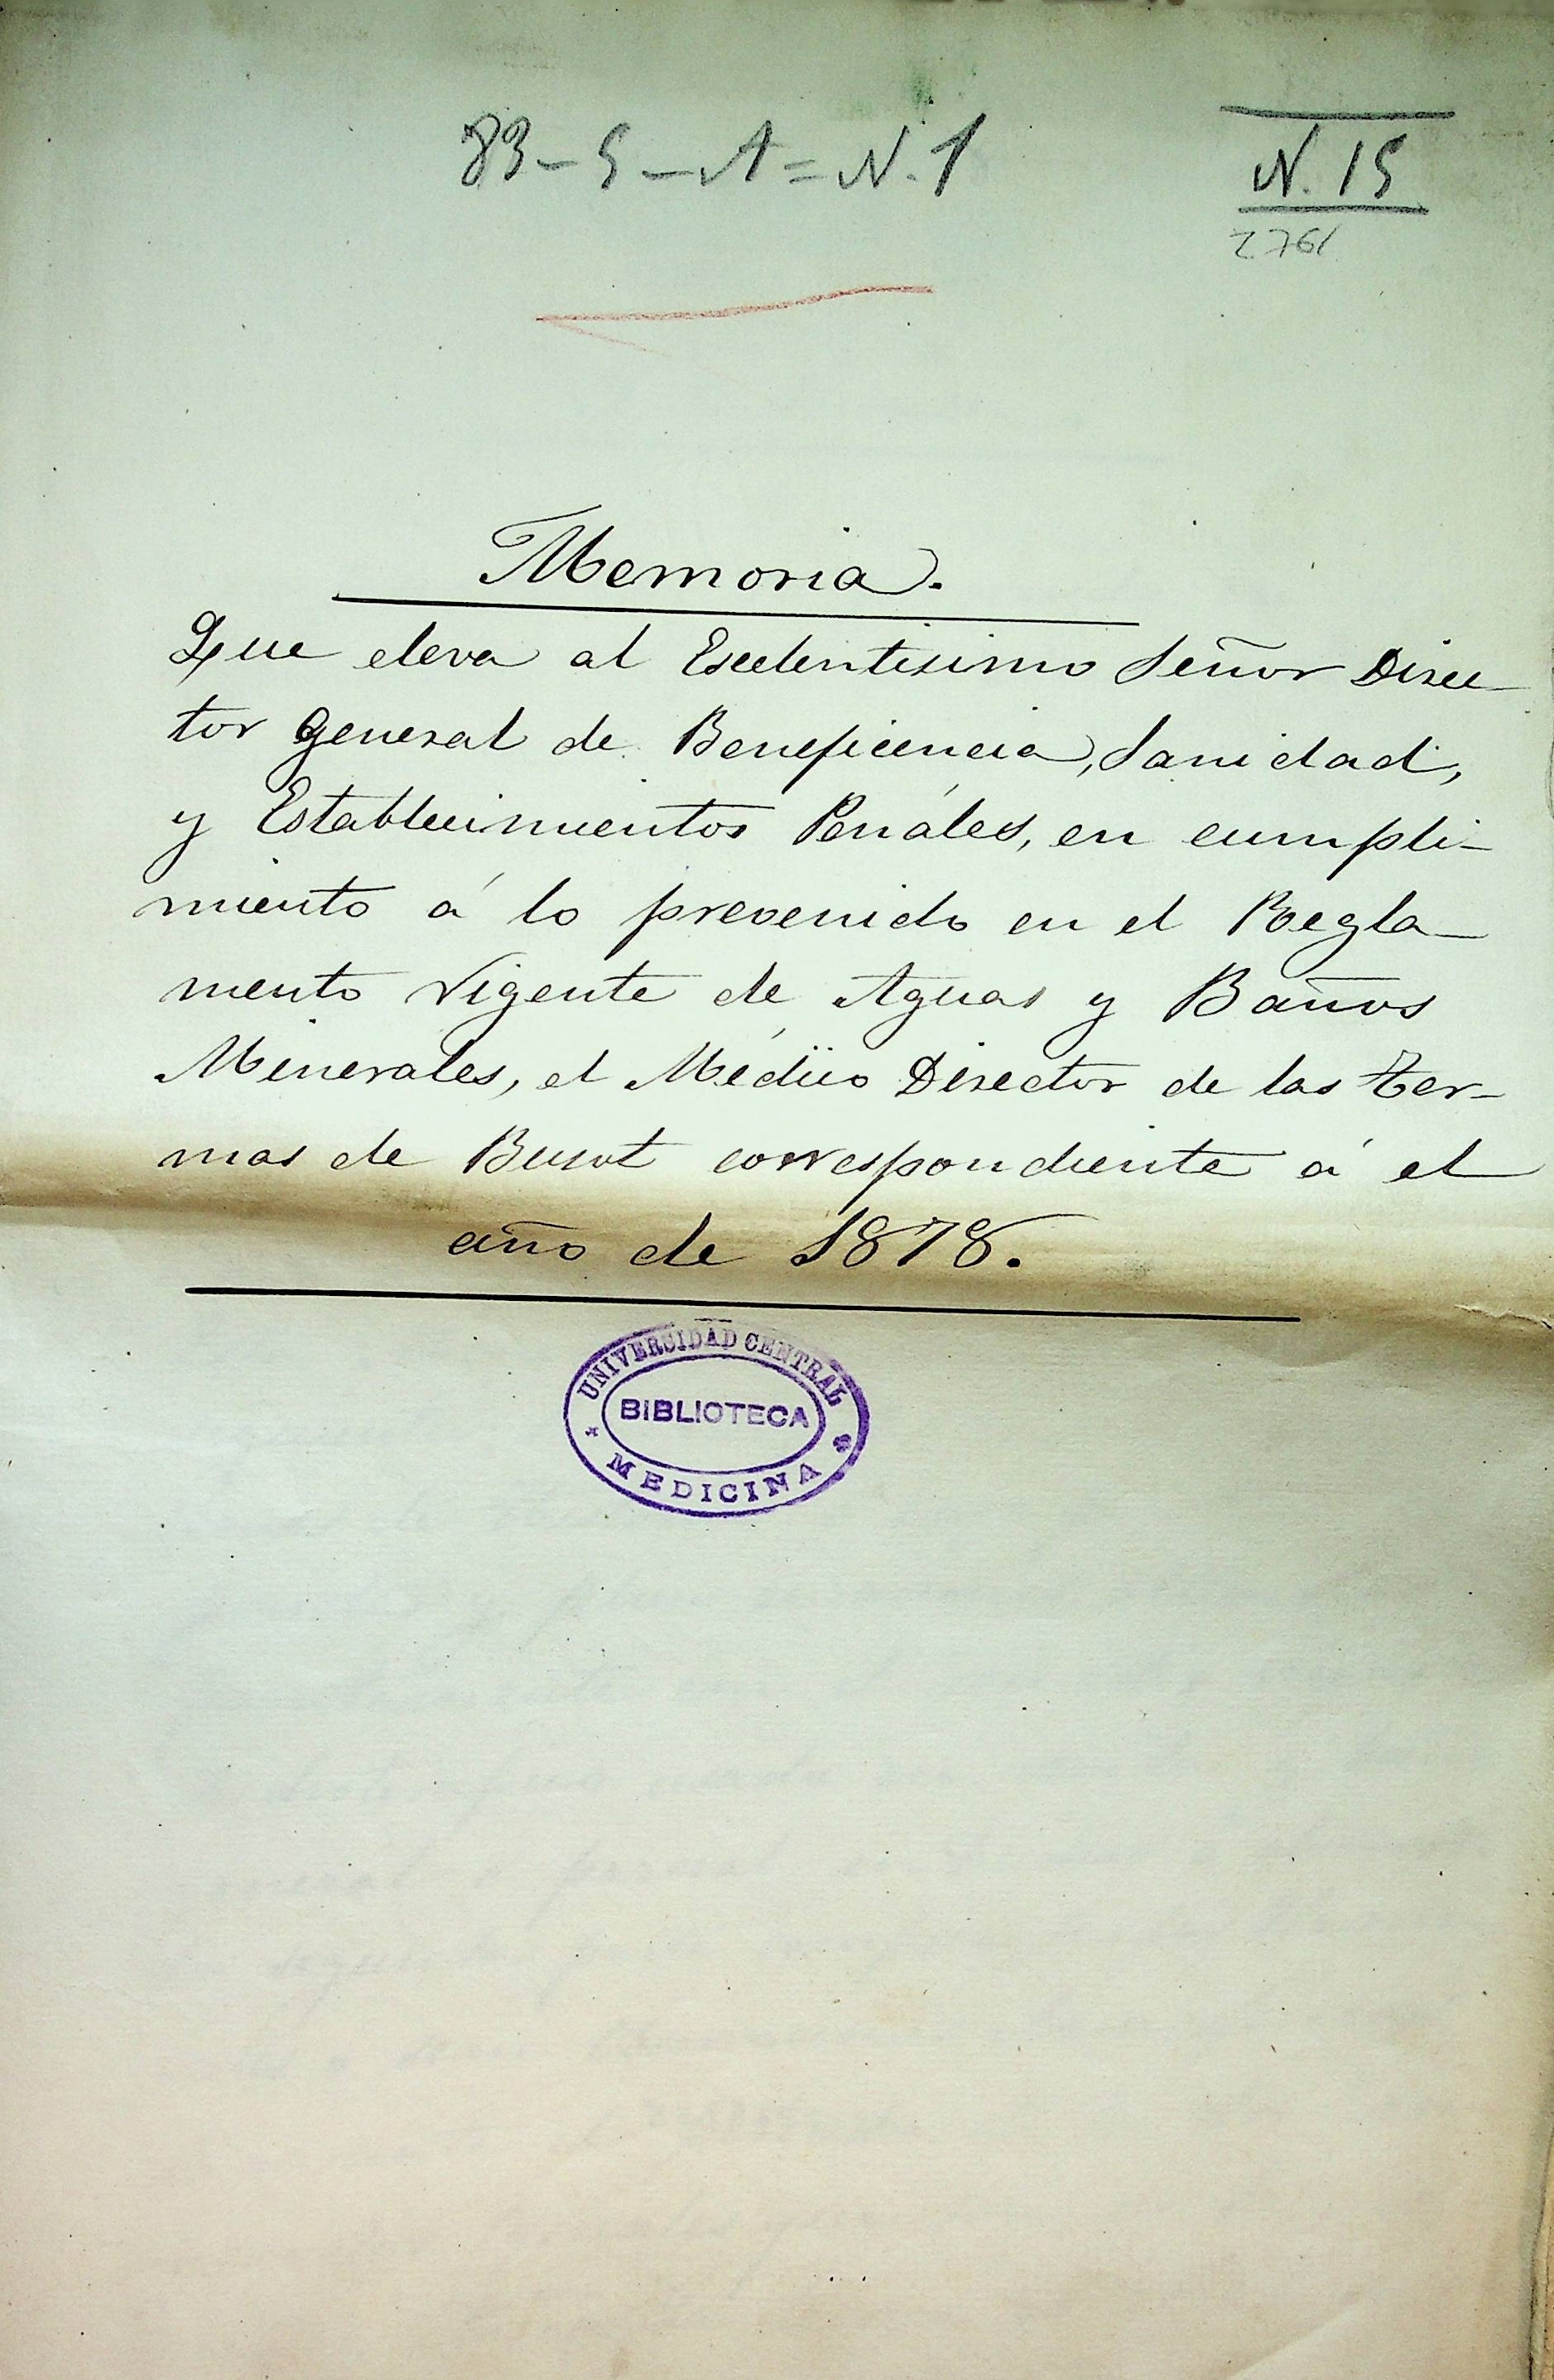 83-5-A=N.1
N. 15
2761
Memoria.
Que eleva al Escelentisimo Señor Direc-
tor General de Beneficencia, Sanidad,
y Establecimientos Penáles, en cumpli-
miento á lo prevenido en el Regla-
mento Vigente de Aguas y Baños
Minerales, el Médico Director de las Ter-
mas de Busot correspondiente á el
año de 1878.
UNIVERSIDAD CENTRAL
BIBLIOTECA
MEDICINA